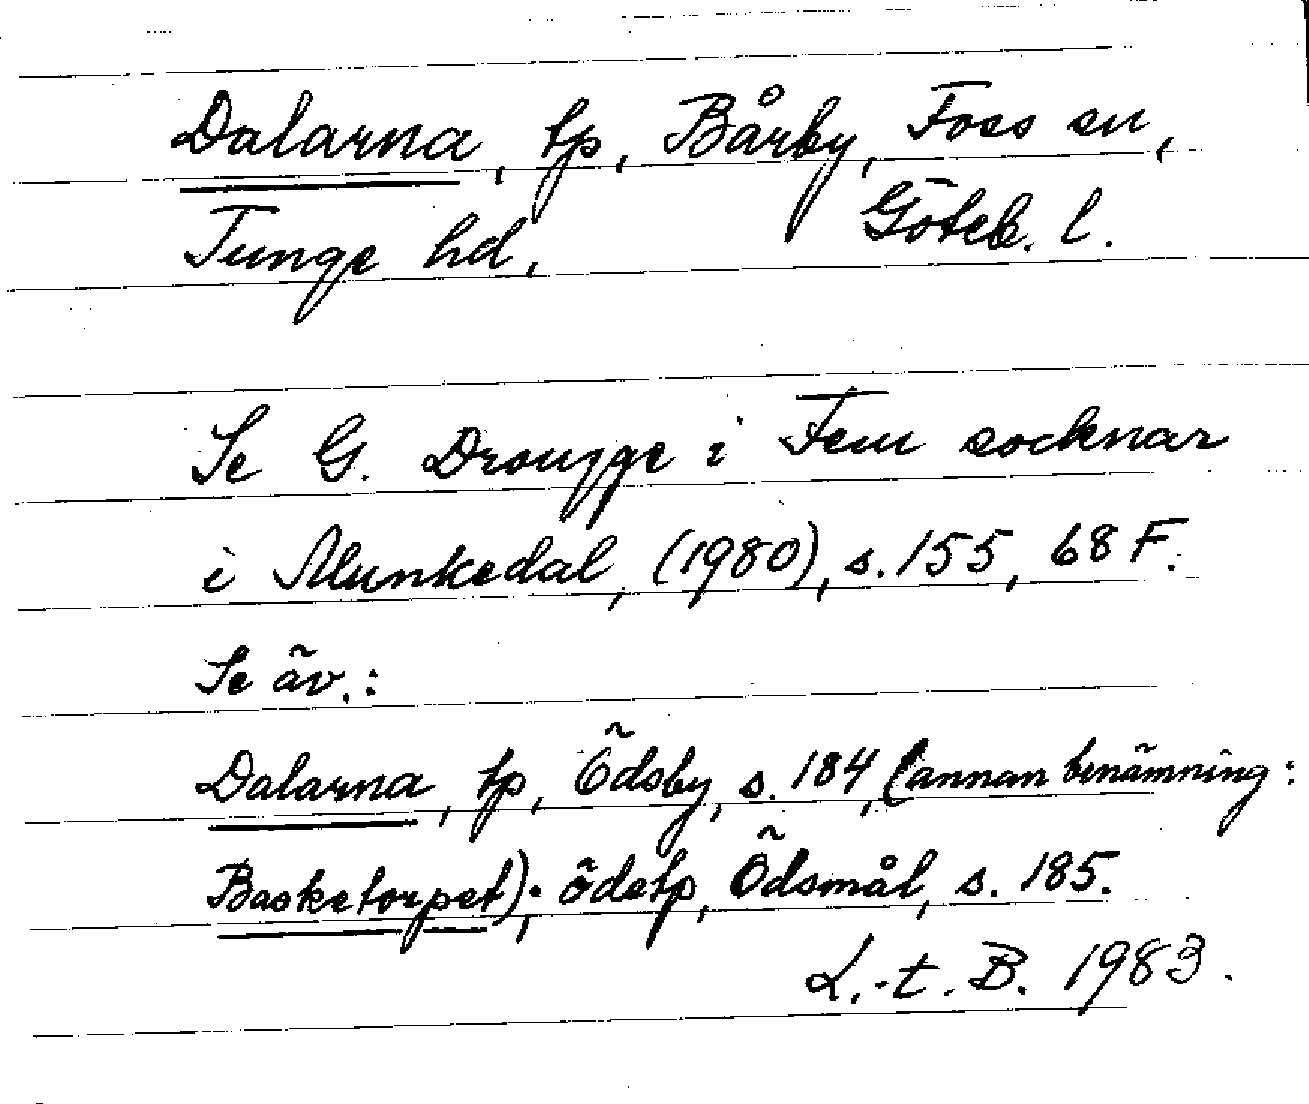 Dalarna, tp, Bårby, Foss sn,
Tunge hd, Göteb. l.
Se G. Drougge i Fem socknar
i Munkedal, (1980), s. 155, 68 F.
Se äv.:
Dalarna, tp, Ödsby, s. 184, (annan benämning:
Basketorpet); ödetp, Ödsmål, s. 185.
L.-t. B. 1983.